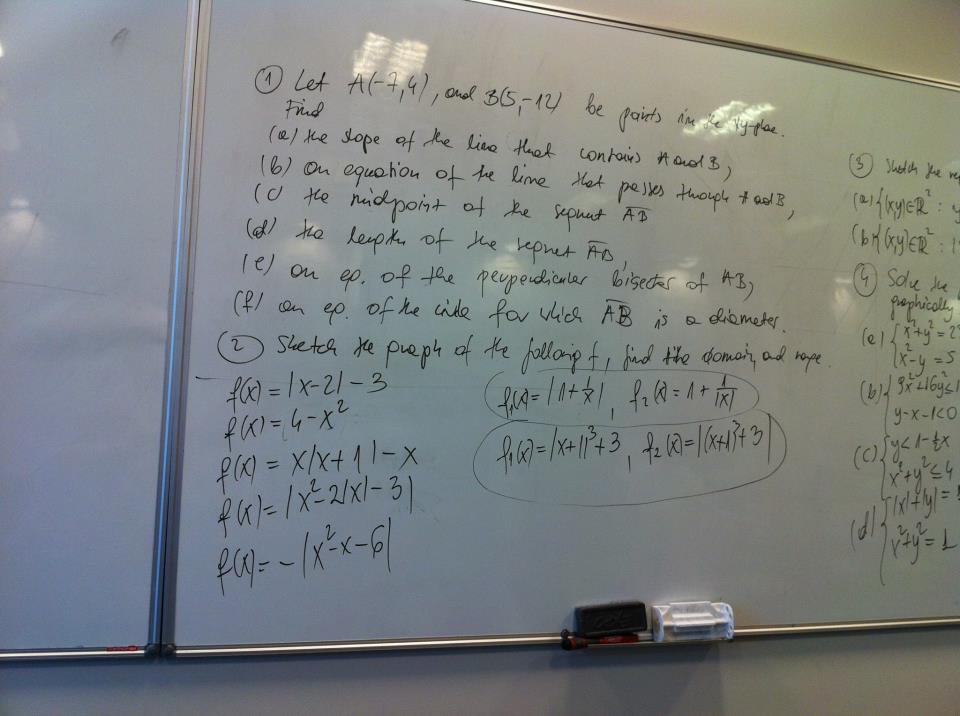 ① Let A(-7,4), and B(5,-12) be points in the xy-plane.
Find
(a) the slope of the line that contains A and B,
(b) an equation of the line that passes through A and B,
(c) the midpoint of the segment AB
(d) the length of the segment AB,
(e) an eq. of the perpendicular bisector of AB,
(f) an eq. of the circle for which AB is a diameter.
② Sketch the graph of the following f, find the domain and range.
f(x) = |x-2| - 3
f(x) = 4 - x²
f(x) = x|x+1| - x
f(x) = |x²-2|x|-3|
f(x) = -|x²-x-6|
f₁(x) = |1 + 1/x|, f₂(x) = 1 + 1/|x|
f₁(x) = |x+1|³+3, f₂(x) = |(x+1)³+3|
③ Sketch the
(a) {(x,y)∈ℝ² :
(b) {(x,y)∈ℝ² :
④ Solve the
graphically
(a) { x²+y² = 2
x²-y = 5
(b) { 9x²+16y² ≤ 1
y-x-1<0
(c) { y < 1-½x
x²+y² ≤ 4
(d) { |x|+|y| =
x²+y² = 1